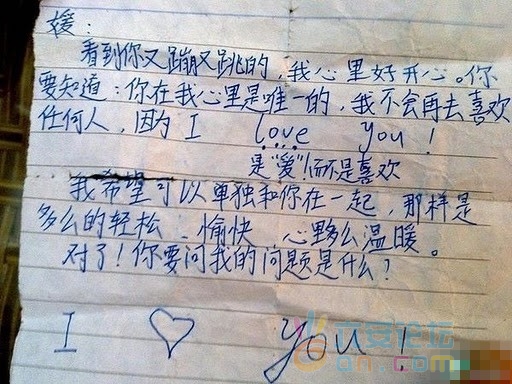 媛：
看到你又蹦又跳的，我心里好开心。你
要知道：你在我心里是唯一的，我不会再去喜欢
任何人，因为I love you!
是“爱”!而不是喜欢
我希望可以单独和你在一起，那样是
多么的轻松、愉快 心多么温暖。
对了！你要问我的问题是什么？
I ♡ you!
六安论坛